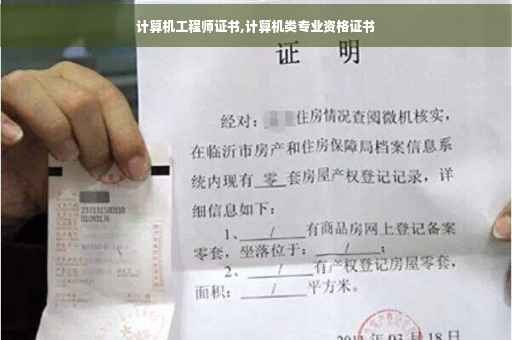 计算机工程师证书,计算机类专业资格证书
证 明
经对: 住房情况查阅微机核实,
在临沂市房产和住房保障局档案信息系
统内现有 零 套房屋产权登记记录,详
细信息如下:
1、 / 有商品房网上登记备案
零套,坐落位于: / ;
2、 / 有产权登记房屋零套,
面积: / 平方米。
年 03 月 18 日